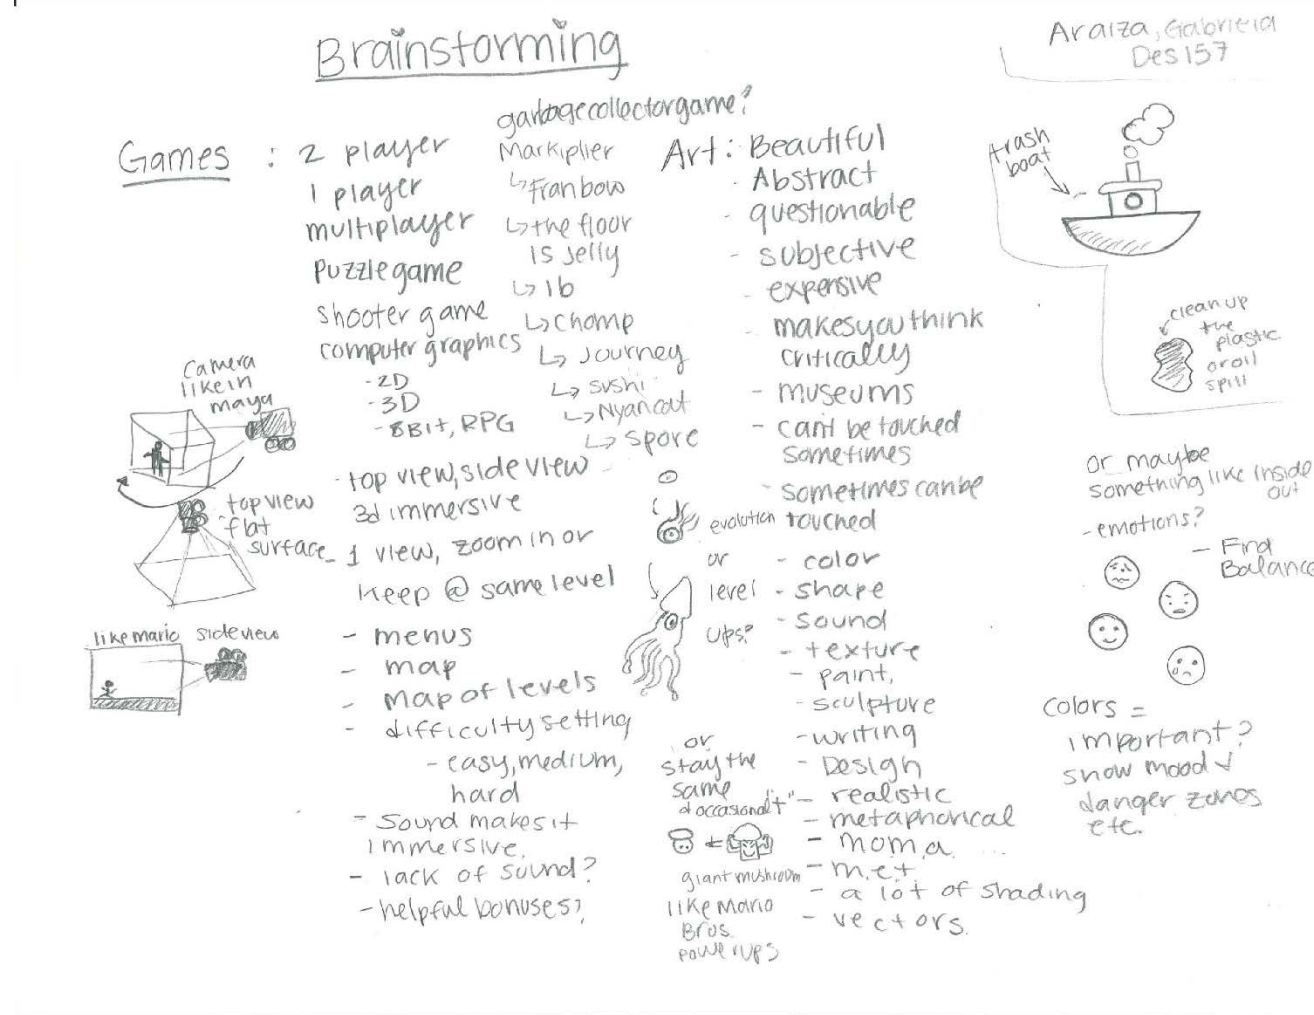 Brainstorming
Araiza, Gabriela
Des 157
Games : 2 player
1 player
multiplayer
puzzle game
shooter game
computer graphics
-2D
-3D
-8Bit, RPG
- top view, side view
3d immersive
- 1 view, zoom in or
keep @ same level
- menus
- map
- map of levels
- difficulty setting
- easy, medium,
hard
- Sound makes it
immersive.
- lack of sound?
- helpful bonuses?
camera
like in
maya
top view
flat
surface
like mario side view
garbage collector game?
Markiplier
↳ Fran bow
↳ the floor
is Jelly
↳ Ib
↳ chomp
↳ Journey
↳ sushi
↳ Nyan cat
↳ spore
evolution
or
level
ups?
or
stay the
same
giant mushroom
like Mario
Bros.
power ups
Art: Beautiful
- Abstract
- questionable
- subjective
- expensive
- makes you think
critically
- museums
- can't be touched
sometimes
- sometimes can be
touched
- color
- shape
- sound
- texture
- paint,
- sculpture
- writing
- Design
- realistic
- metaphorical
- moma
- met
- a lot of shading
- vectors.
trash
boat
clean up
the
plastic
or oil
spill
or maybe
something like Inside
out
- emotions?
- Find
Balance
colors =
important?
show mood ✓
danger zones
etc.